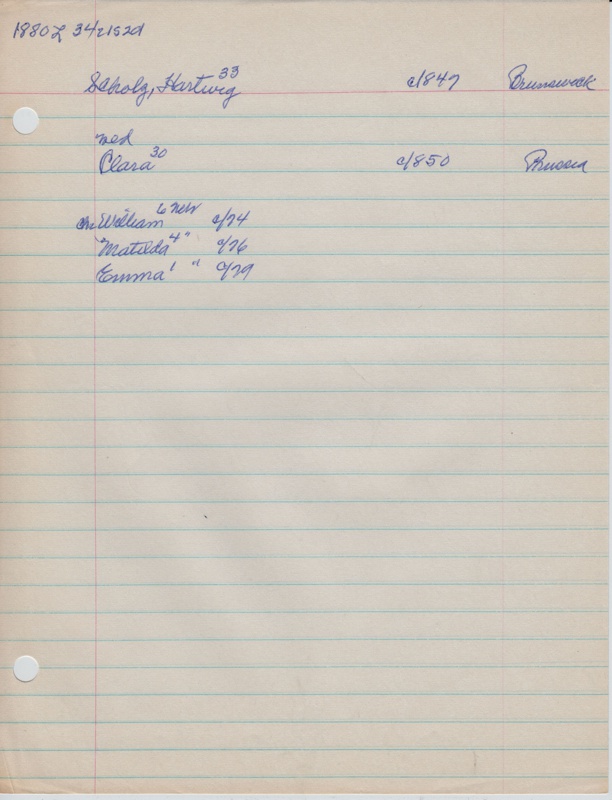 1880 L 34/21S2d
Scholz, Hartwig 33 c/847 Brunswick
wed
Clara 30 c/850 Prussia
ch William 6 Neb c/74
Matilda 4 " c/76
Emma 1 " c/79